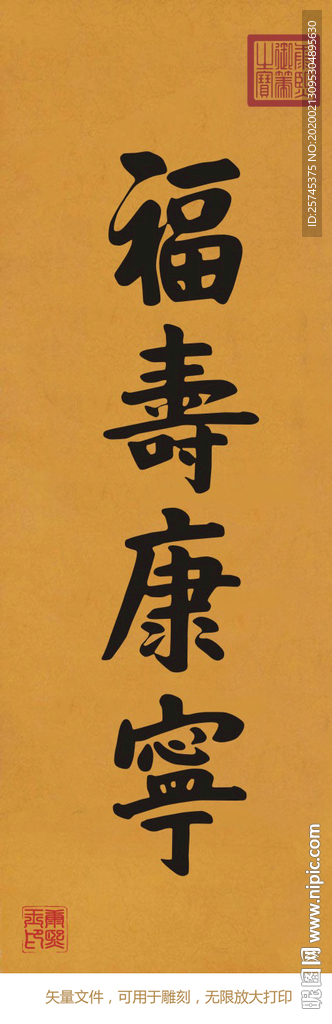 福壽康寧
康熙御筆之寶
ID:25745375 NO:20200213095304895630
昵图网 www.nipic.com
矢量文件，可用于雕刻，无限放大打印